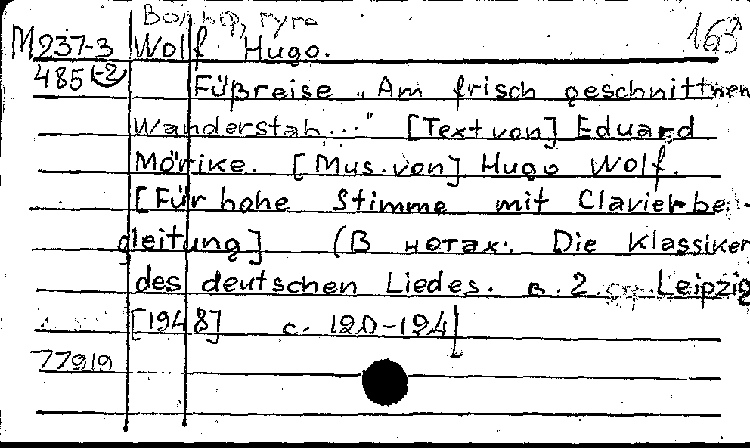 Вольф, Гуго 163
M 937-3 Wolf Hugo.
485 (-2) Füßreise „Am frisch geschnittnen
Wanderstab..." [Text von] Eduard
Mörike. [Mus. von] Hugo Wolf.
[Für hohe Stimme mit Clavierbei-
gleitung] (В нотах: Die Klassiker
des deutschen Liedes. в. 2. Leipzig
[1948] с. 190-194
77919